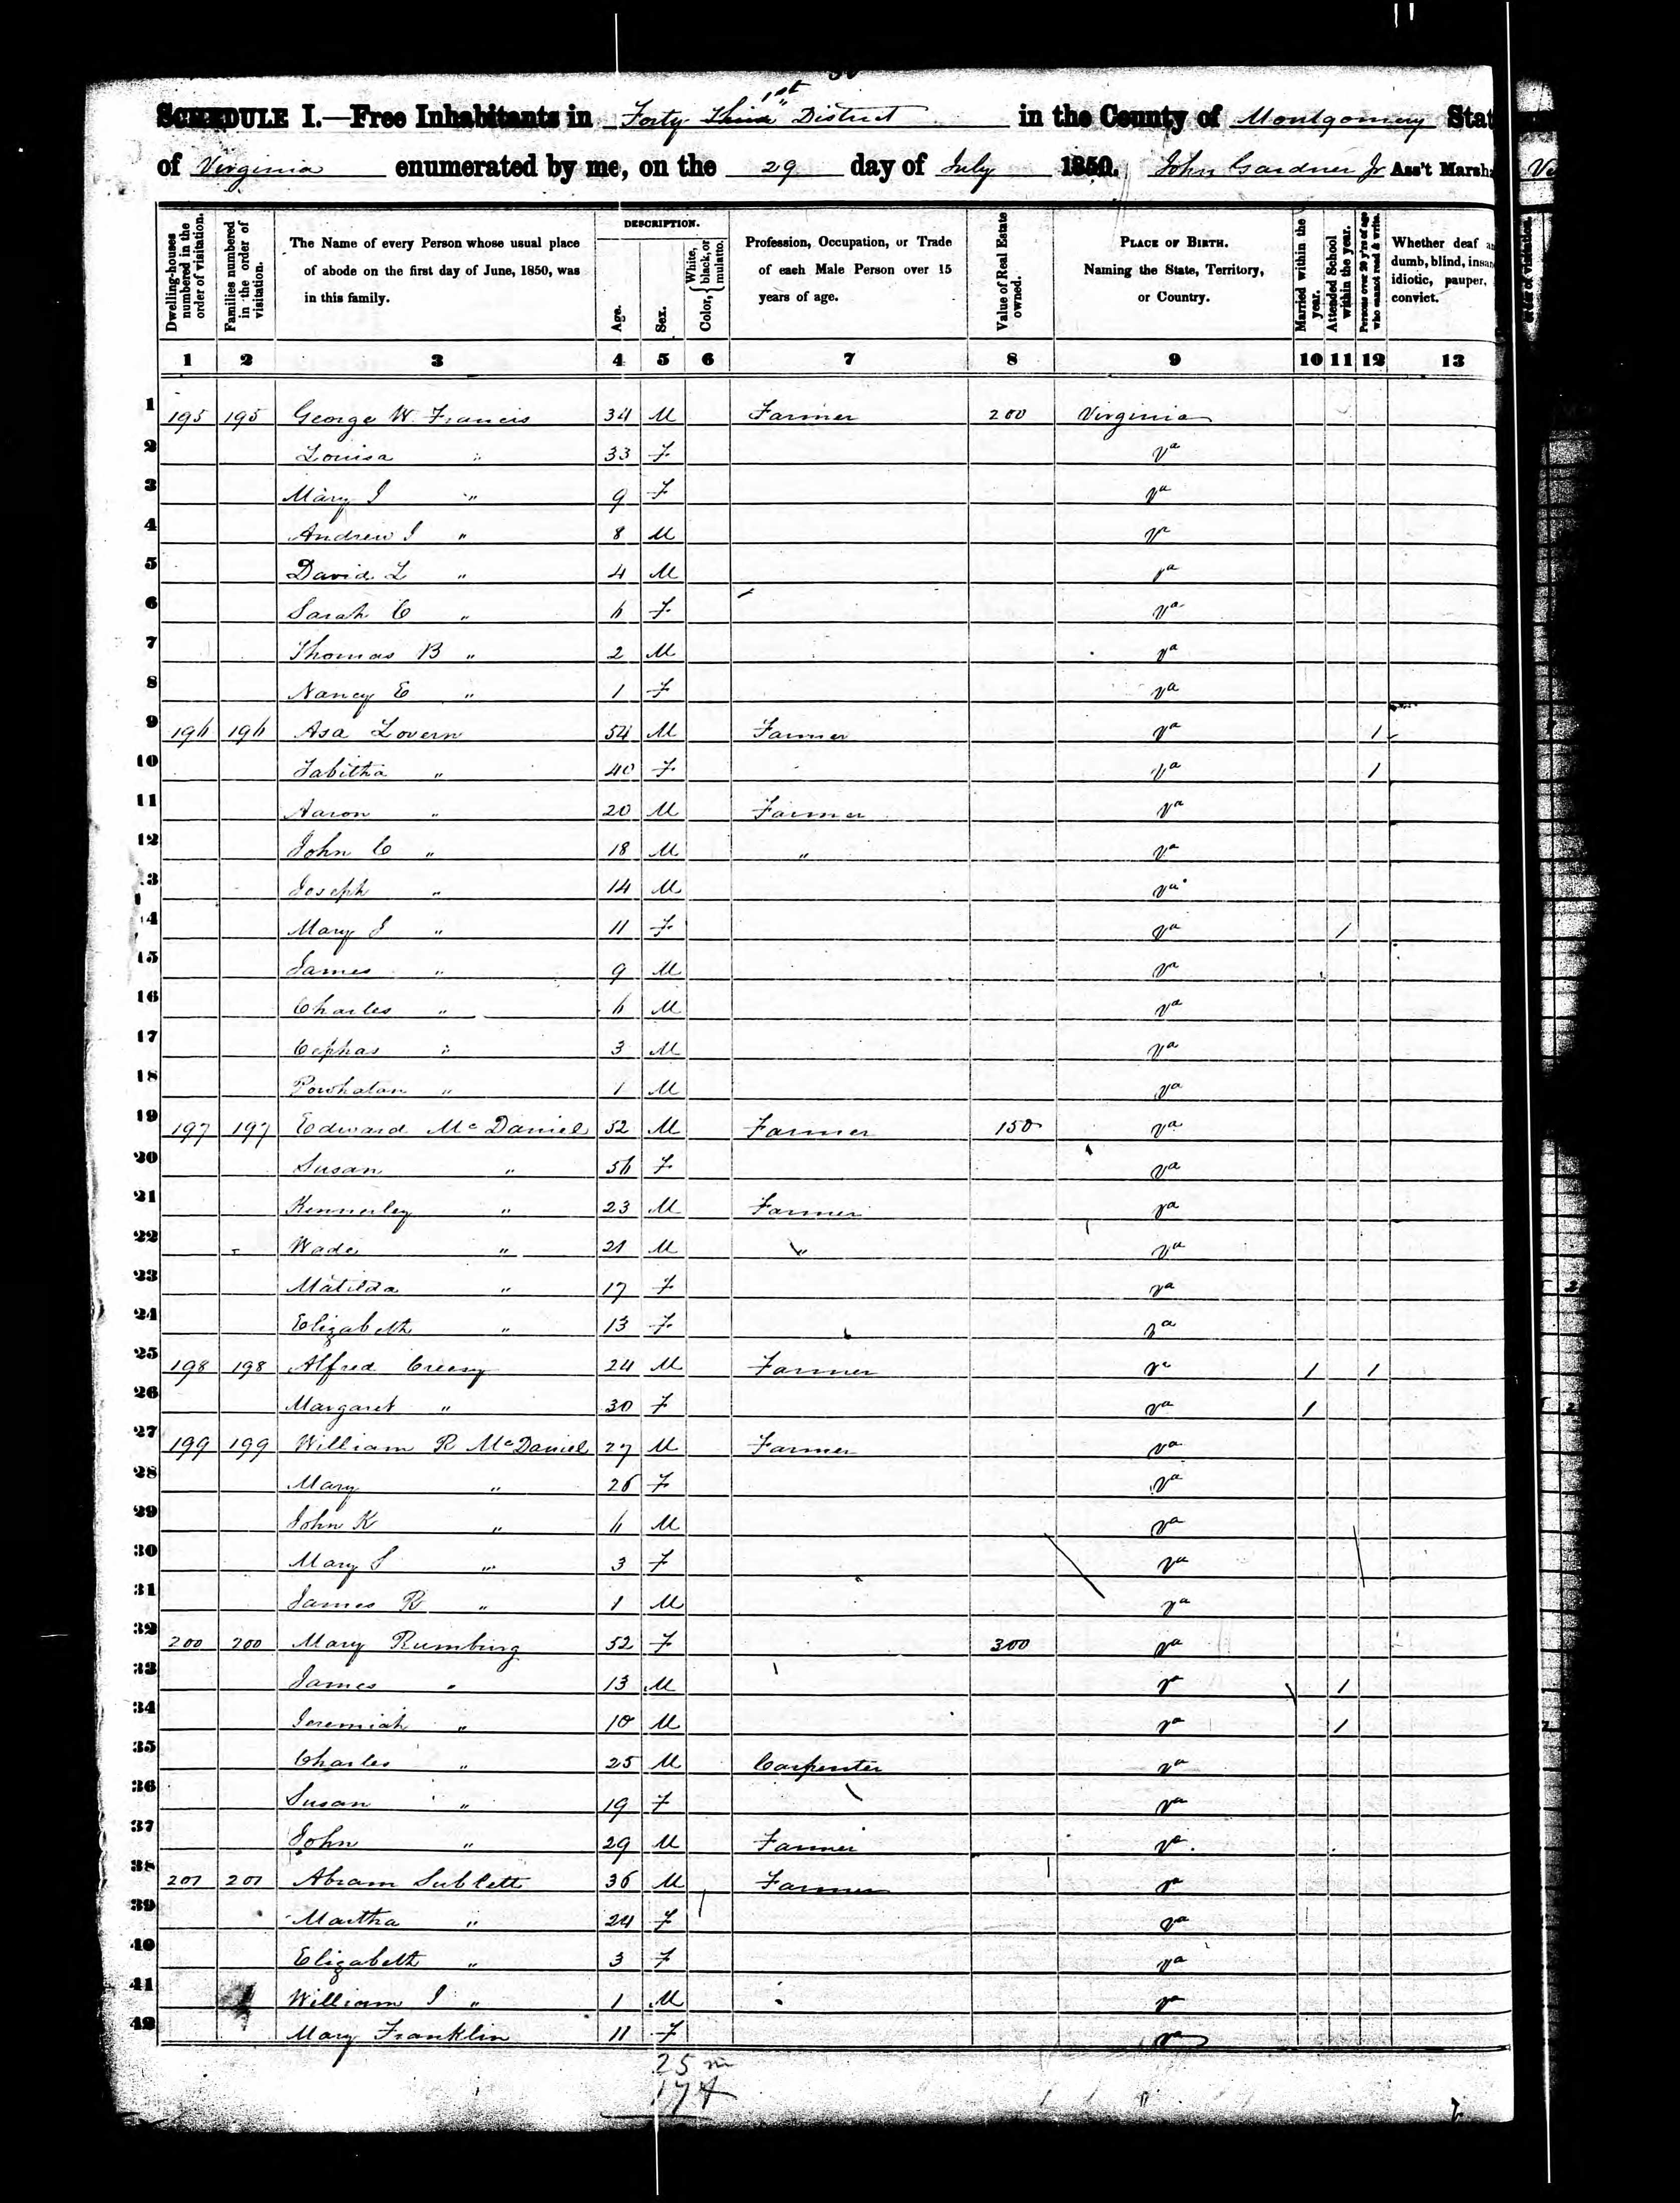 SCHEDULE I.—Free Inhabitants in Forty 1st District in the County of Montgomery Stat
of Virginia enumerated by me, on the 29 day of July 1850. John Gardner Jr Ass't Marsh
Dwelling-houses numbered in the order of visitation.
Families numbered in the order of visitation.
The Name of every Person whose usual place of abode on the first day of June, 1850, was in this family.
DESCRIPTION.
Age.
Sex.
Color, White, black, or mulatto.
Profession, Occupation, or Trade of each Male Person over 15 years of age.
Value of Real Estate owned.
PLACE OF BIRTH. Naming the State, Territory, or Country.
Married within the year.
Attended School within the year.
Persons over 20 y'rs of age who cannot read & write.
Whether deaf a dumb, blind, insan idiotic, pauper, convict.
1 2 3 4 5 6 7 8 9 10 11 12 13
1 195 195 George W. Francis 34 M Farmer 200 Virginia
2 Louisa " 33 F Va
3 Mary J " 9 F Va
4 Andrew J " 8 M Va
5 David L " 4 M Va
6 Sarah C " 6 F Va
7 Thomas B " 2 M Va
8 Nancy E " 1 F Va
9 196 196 Asa Lovern 54 M Farmer Va 1
10 Tabitha " 40 F Va 1
11 Aaron " 20 M Farmer Va
12 John C " 18 M " Va
13 Joseph " 14 M Va
14 Mary J " 11 F Va 1
15 James " 9 M Va
16 Charles " 6 M Va
17 Cephas " 3 M Va
18 Powhatan " 1 M Va
19 197 197 Edward McDaniel 52 M Farmer 150 Va
20 Susan " 56 F Va
21 Kennerley " 23 M Farmer Va
22 Wade " 21 M " Va
23 Matilda " 17 F Va
24 Elizabeth " 13 F Va
25 198 198 Alfred Creesy 24 M Farmer Va 1 1
26 Margaret " 30 F Va 1
27 199 199 William R McDaniel 27 M Farmer Va
28 Mary " 26 F Va
29 John K " 6 M Va
30 Mary S " 3 F Va
31 James R " 1 M Va
32 200 200 Mary Rumburg 52 F 300 Va
33 James " 13 M Va 1
34 Jeremiah " 10 M Va 1
35 Charles " 25 M Carpenter Va
36 Susan " 19 F Va
37 John " 29 M Farmer Va
38 201 201 Abram Sublett 36 M Farmer Va
39 Martha " 24 F Va
40 Elizabeth " 3 F Va
41 William J " 1 M Va
42 Mary Franklin 11 F Va
25 m
17 f